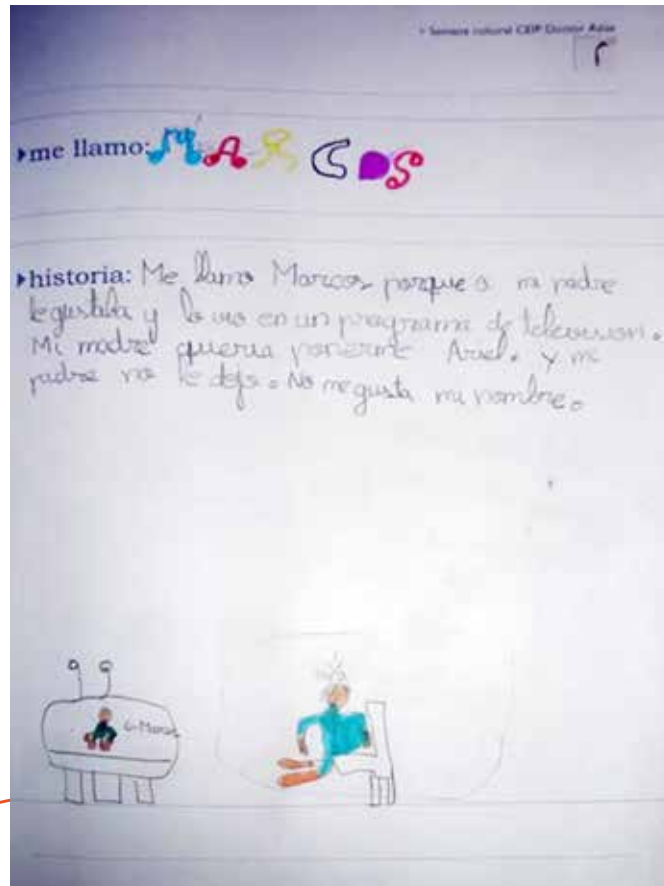 ▸ Semana cultural CEIP Doctor Azúa
▸me llamo: MARCOS
▸historia: Me llamo Marcos porque a mi padre
le gustaba y lo vio en un programa de television.
Mi madre queria ponerme Ariel. y mi
padre no le dejo. No me gusta mi nombre.
Marcos